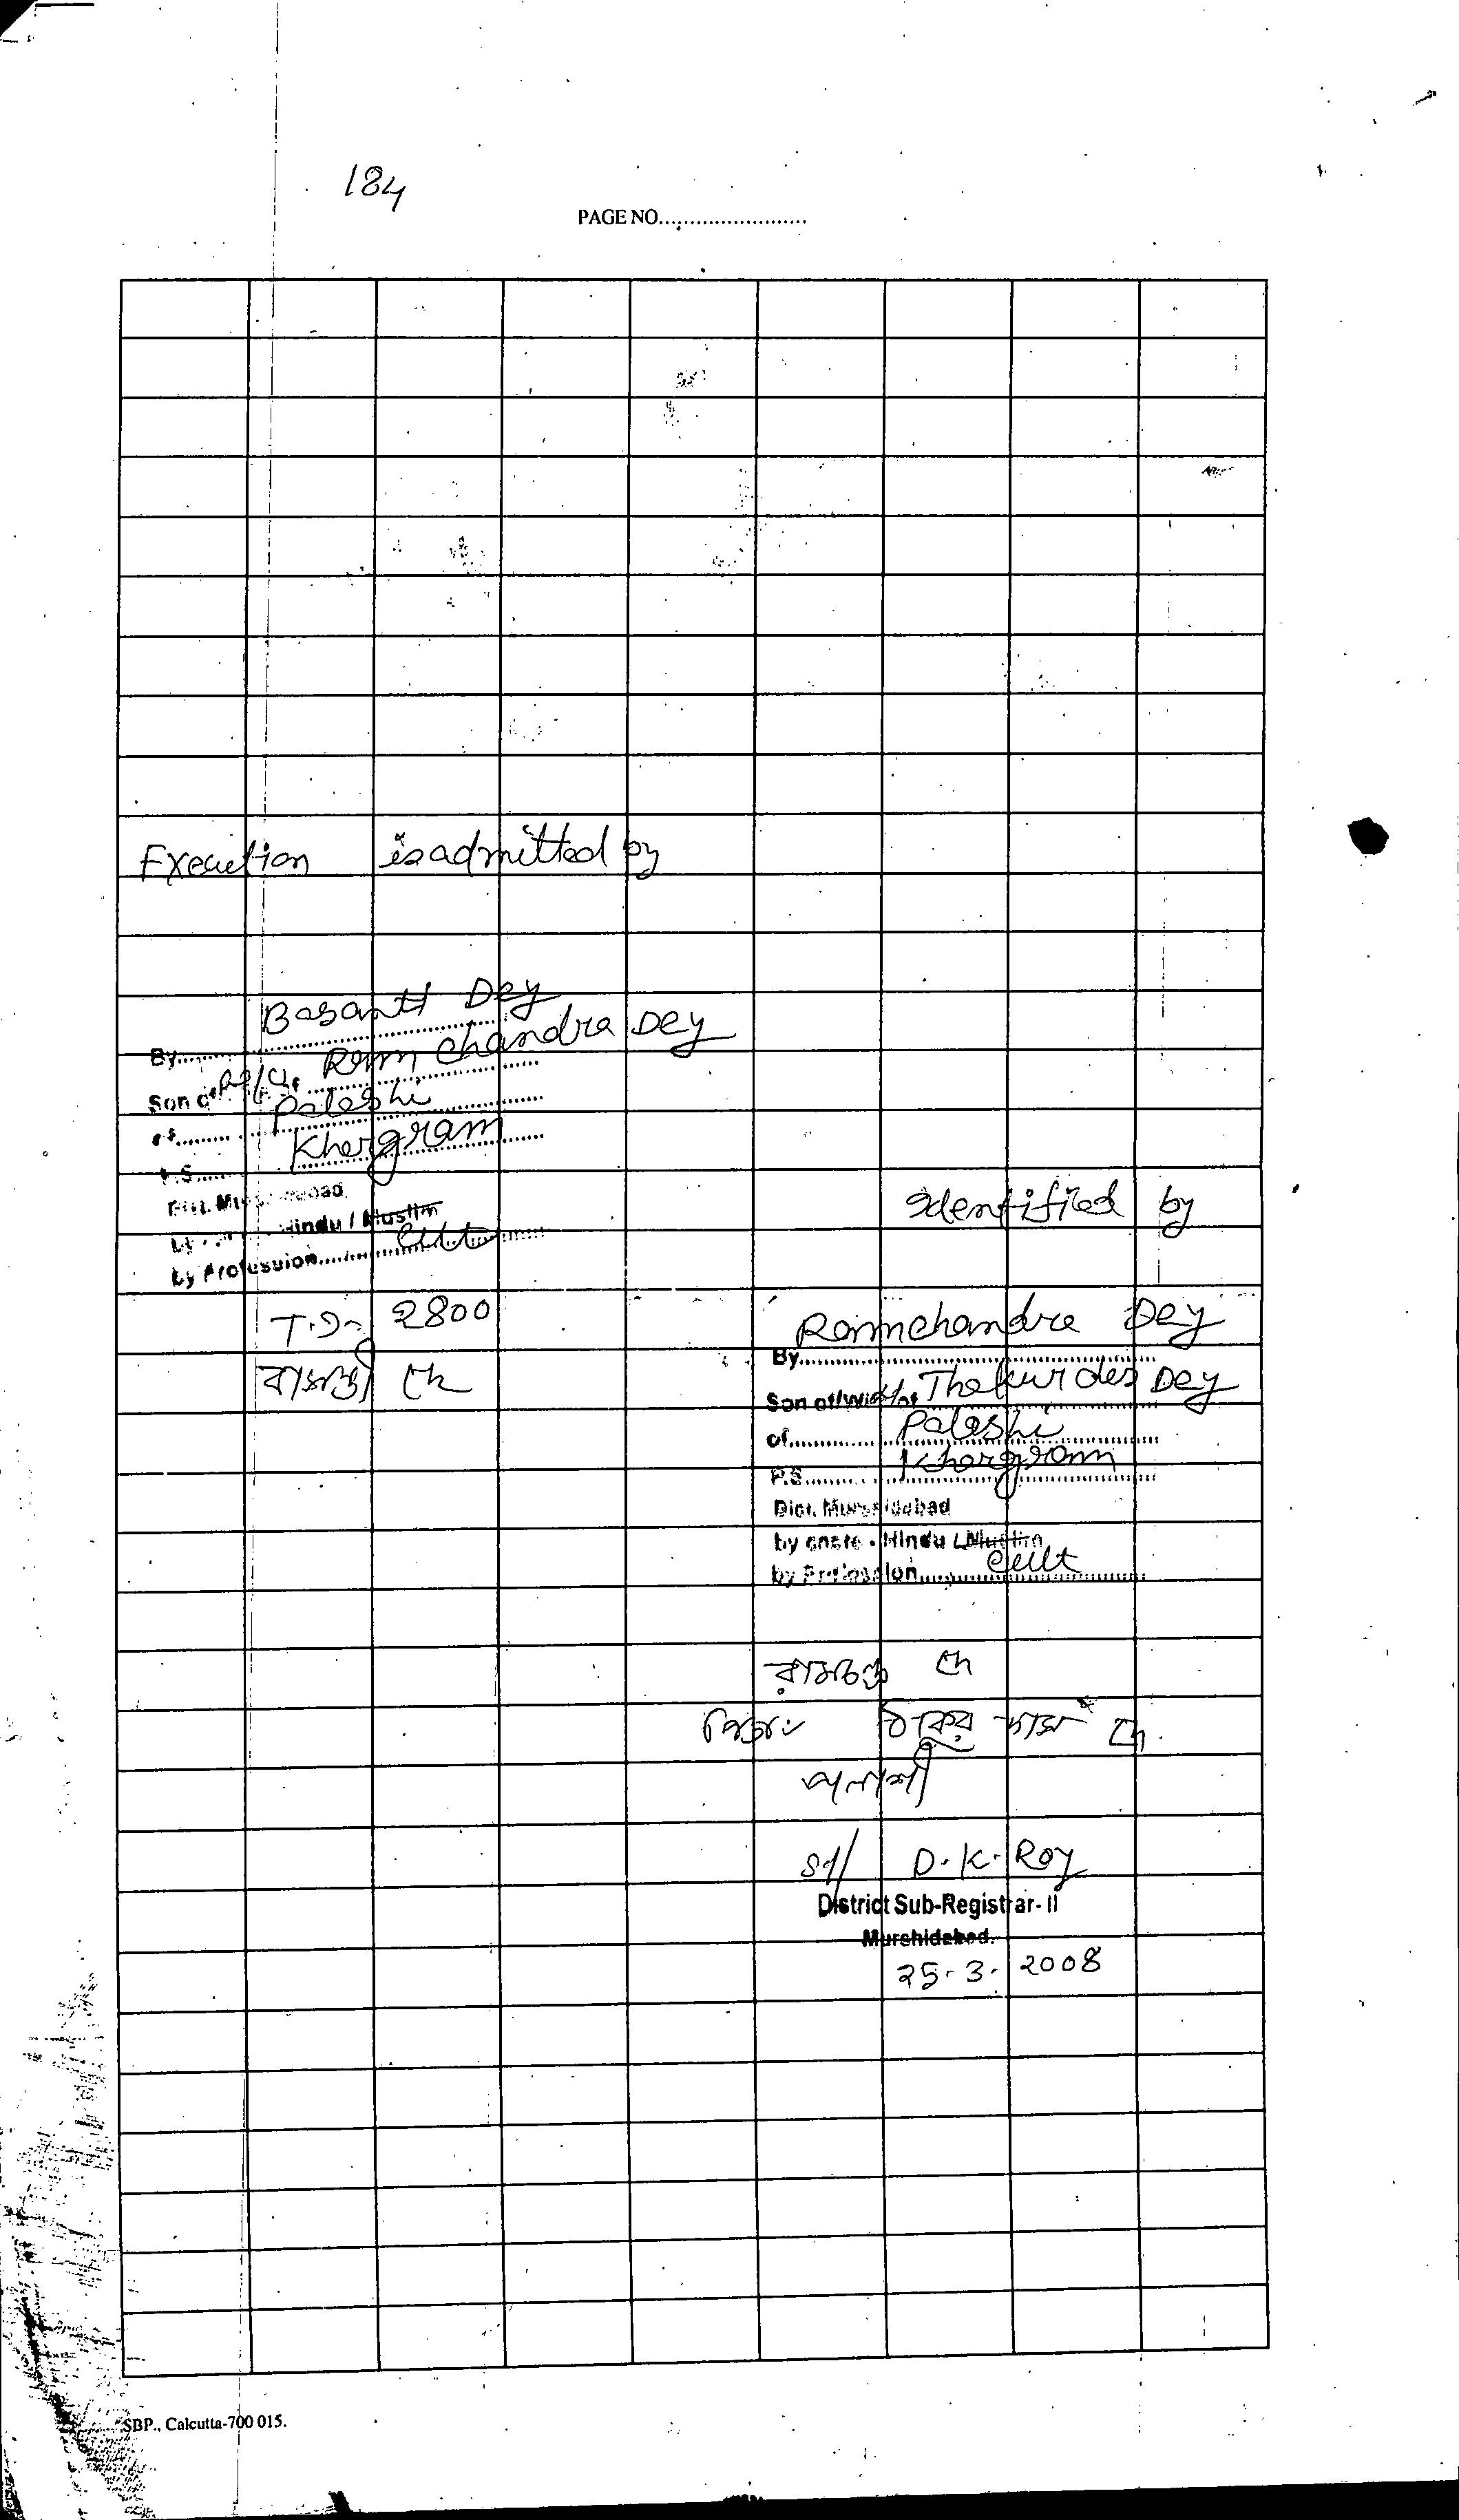 184
PAGE NO........................
Execution is admitted by
Basanti Dey
By
Ram Chandra Dey
Son of
Palashi
of
Khargram
P.S.
Dist. Murshidabad
by Hindu / Muslim
by Profession Cult
T.I. 2800
বাসন্তী দে
Identified by
Ramchandra Dey
By
Son of/Wid/of Thakurdas Dey
of Palashi
P.S. Khargram
Dist. Murshidabad
by caste - Hindu / Muslim
by Profession Cult
রামচন্দ্র দে
পিতাং ঠাকুর দাস দে
পলাশী
Sd/ D. K. Roy
District Sub-Registrar- II
Murshidabad.
25.3.2008
SBP., Calcutta-700 015.